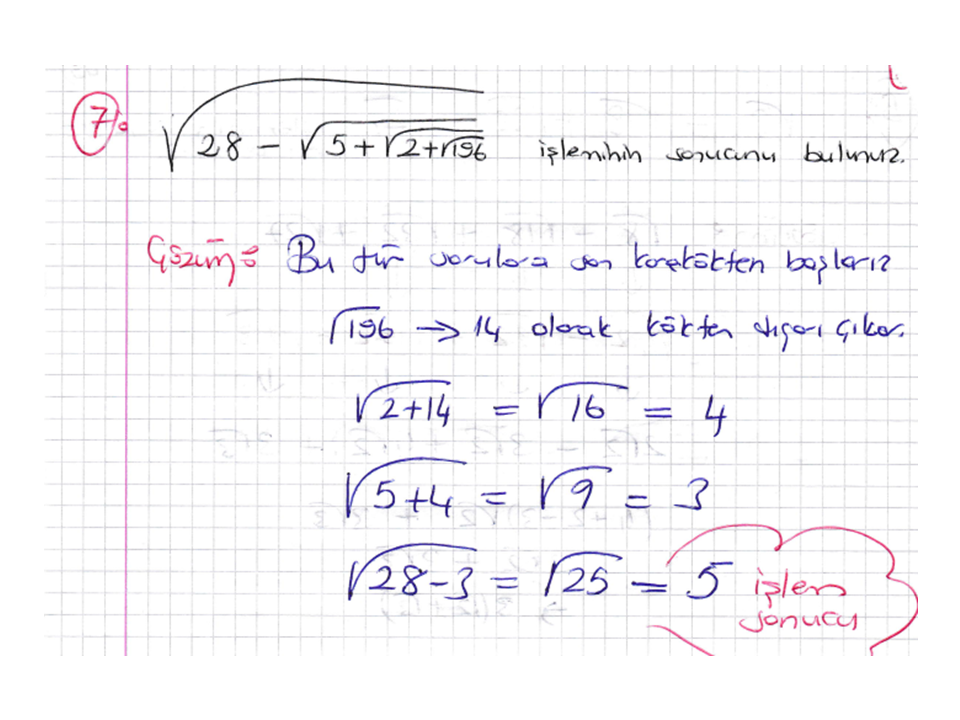 7. √(28 - √(5+√(2+√196))) işleminin sonucunu bulunuz.
Çözüm: Bu tür sorulara son karekökten başlarız
√196 → 14 olarak kökten dışarı çıkar.
√(2+14) = √16 = 4
√(5+4) = √9 = 3
√(28-3) = √25 = 5 işlem
sonucu